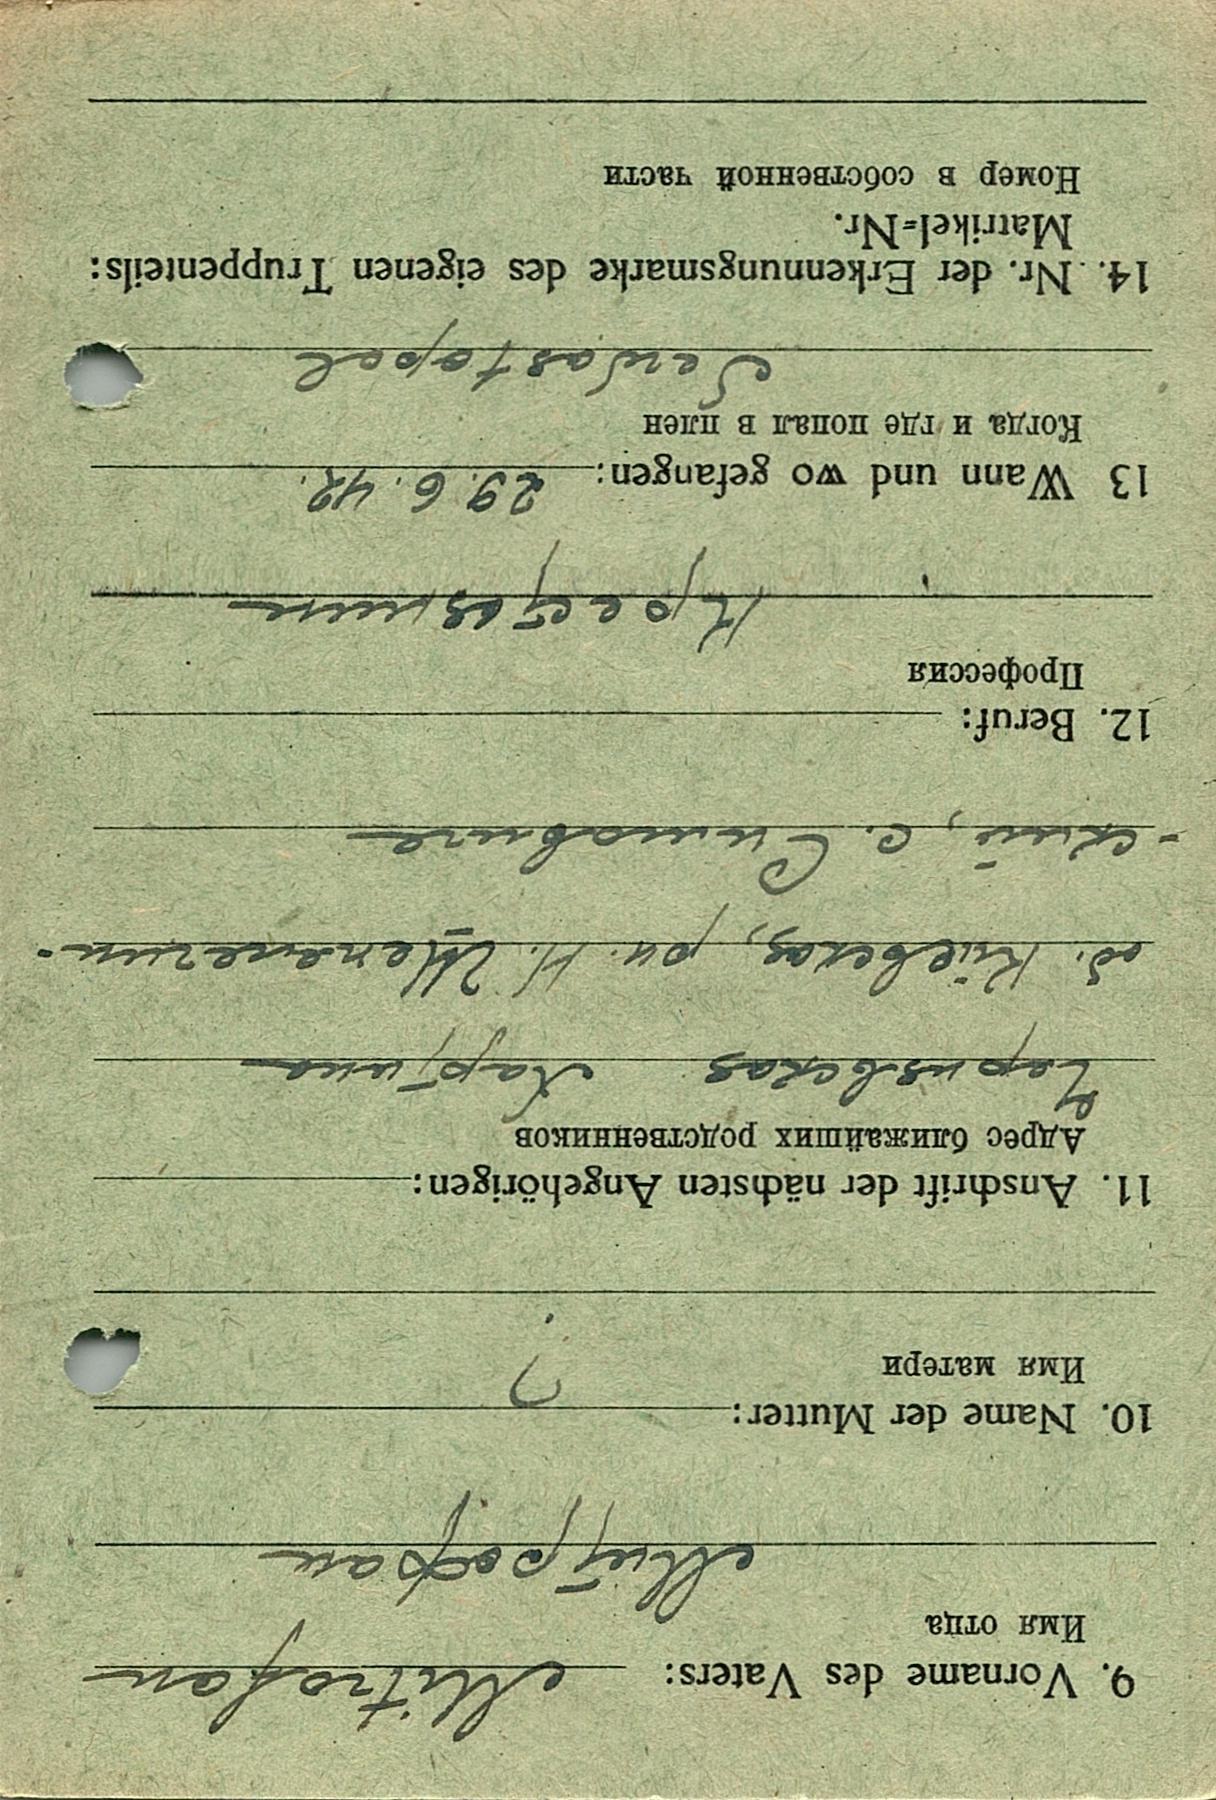 9. Vorname des Vaters: Mitrofan
Имя отца
Митрофан
10. Name der Mutter: ?
Имя матери
11. Anschrift der nächsten Angehörigen:
Адрес ближайших родственников
Чернявская
об. Київская, рн. Н.
-ский, с.
12. Beruf:
Профессия
Крестянин
13 Wann und wo gefangen: 29. 6. 42.
Когда и где попал в плен
Sewastopol
14. Nr. der Erkennungsmarke des eigenen Truppenteils:
Matrikel=Nr.
Номер в собственной части